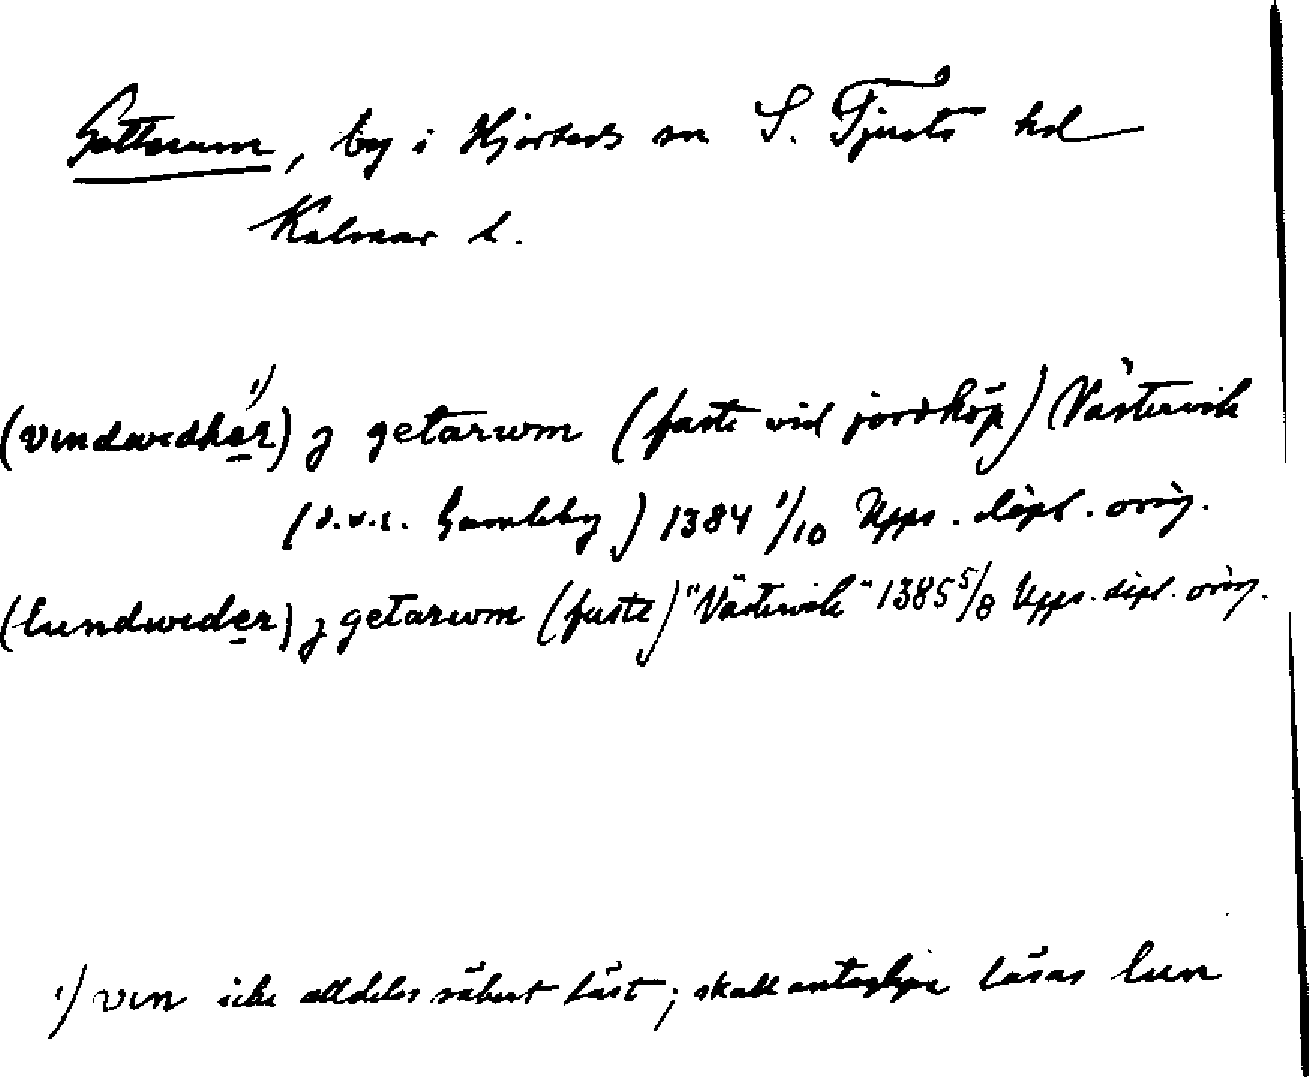 Getterum, by i Hjorteds sn S. Tjusts hd
Kalmar l.
(vindwedher)¹⁾ j getarwm (faste vid jordköp) Västervik
(d.v.s. Gamleby) 1384 1/10 Upps. dipl. orig.
(lundweder) j getarwm (faste) "Västervik" 1385 5/8 Upps. dipl. orig.
¹⁾ vin icke alldeles säkert läst; skall antagligen läsas lun